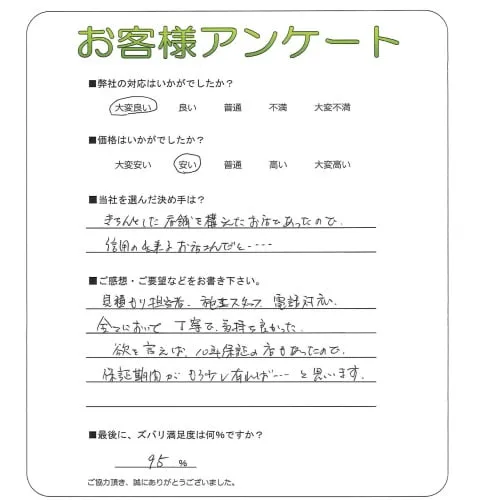 お客様アンケート
■弊社の対応はいかがでしたか？
大変良い 良い 普通 不満 大変不満
■価格はいかがでしたか？
大変安い 安い 普通 高い 大変高い
■当社を選んだ決め手は？
きちんとした店舗を構えたお店であったので、
信用の出来るお店さんだと----
■ご感想・ご要望などをお書き下さい。
見積もり担当者、施工スタッフ、電話対応、
全てにおいて丁寧で、気持ち良かった。
欲を言えば、10年保証の店もあったので、
保証期間がもう少し有れば---と思います。
■最後に、ズバリ満足度は何％ですか？
95 %
ご協力頂き、誠にありがとうございました。